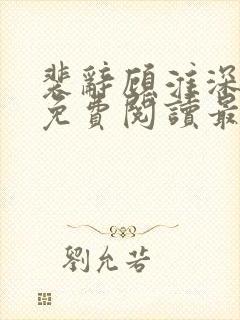 裴辭顧淮深
免費閱讀最
劉允若